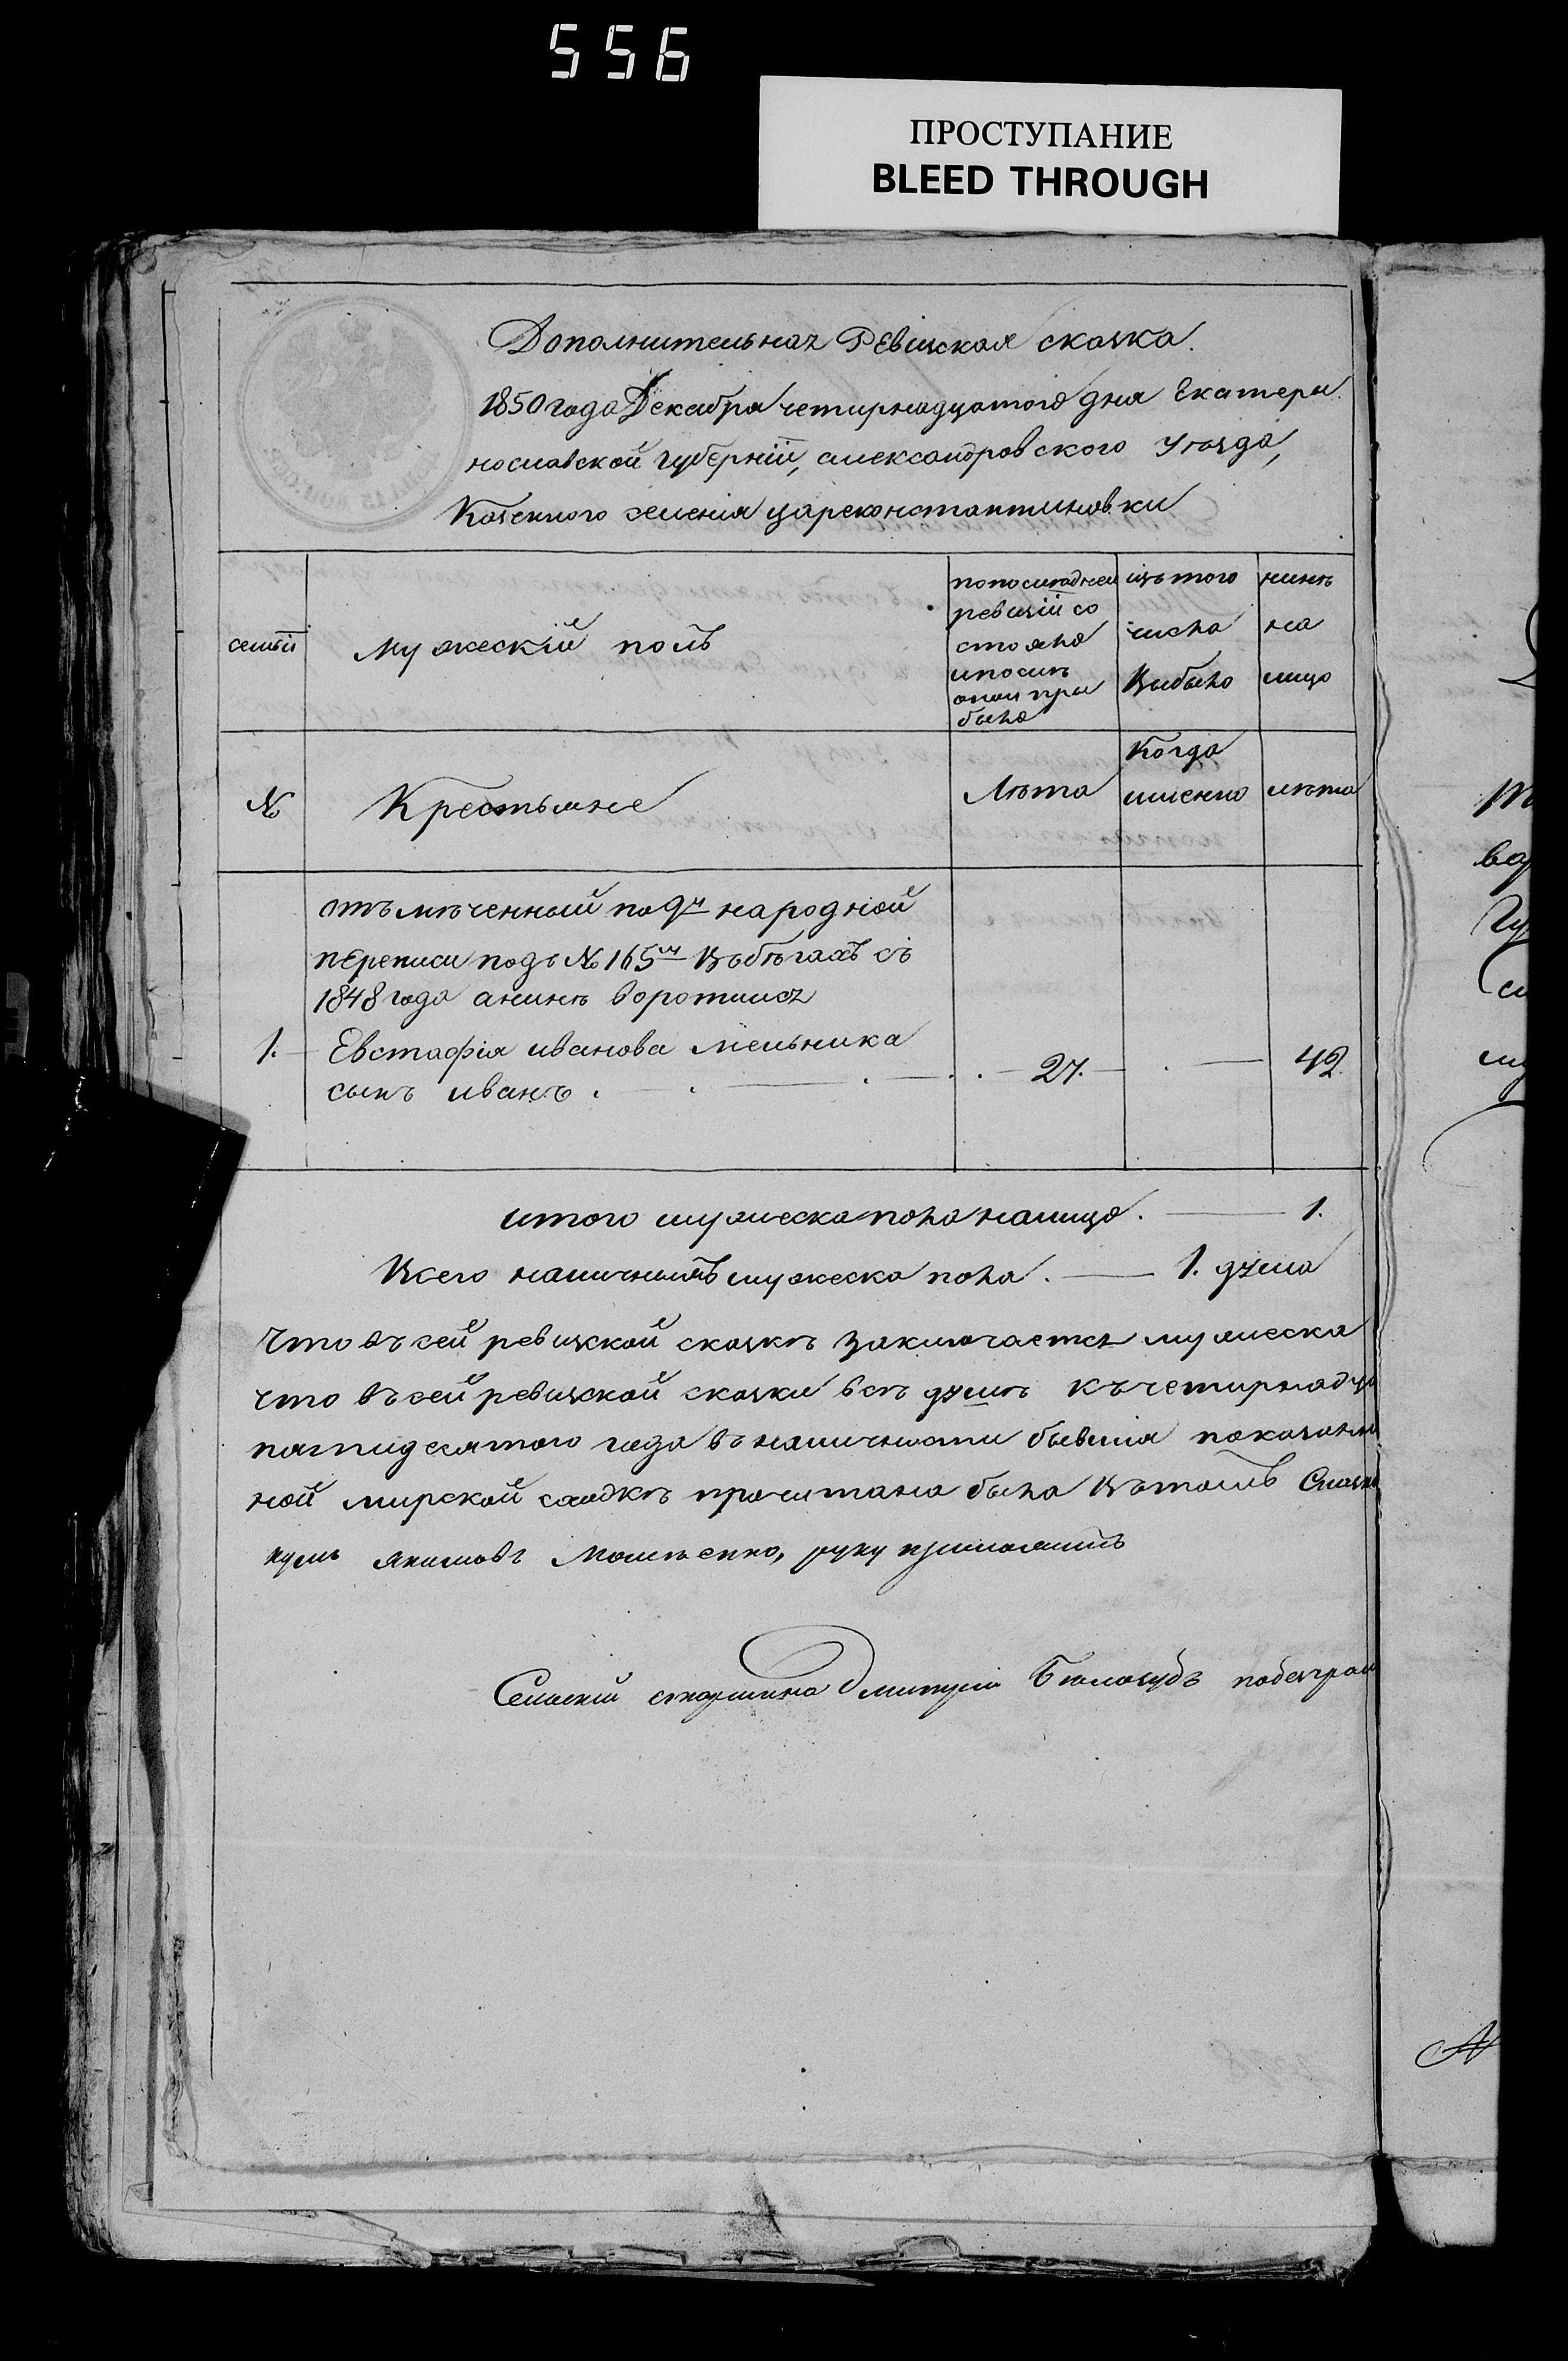 556
ПРОСТУПАНИЕ
BLEED THROUGH
Дополнительная Ревизская сказка.
1850 года Декабря четирнадцатого дня Екатери
нославской губерніи, александровского Уѣзда,
Казенного селенія цареконстантиновки
семьи
мужескій полъ
по последней
ревизіи со
стояло
и посиѣ
оной при
было
изъ того
числа
Выбыло
нинѣ
на
лицо
№
Крестьяне
Лѣта
Когда
именно
лѣта
отъмѣченный по 9й народной
переписи подъ № 165м Въ бѣгахъ съ
1848 года а нинѣ воротился
1. Евстафія иванова мельника
сынъ иванъ. 27. 42.
итого мужеска пола налицо. 1.
Всего наличныхъ мужеска пола. 1. душа
Что въ сей ревизской сказкѣ заключается мужеска
что въ сей ревизской сказки всѣ души къ четирнадца
пятидесятого года въ наличности бывшія показаны
ной мирской сходкѣ прочитана была Въ томъ
якимовъ руку приложилъ
Сельскій старшина Дмитрій Бѣлозубъ